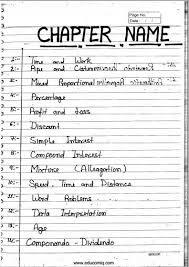 Page No.
Date
CHAPTER NAME
1:- Time and Work
2:- Pipe and
3:- Mixed Proportional
4:- Percentage
5:- Profit and Loss
6:- Discount
7:- Simple Interest
8:- Compound Interest
9:- Mixture (Alligation)
10:- Speed, Time and Distance
11:- Word Problems
12:- Data Interpretation
13:- Age
14:- Componendo - Dividendo
www.educomiq.com